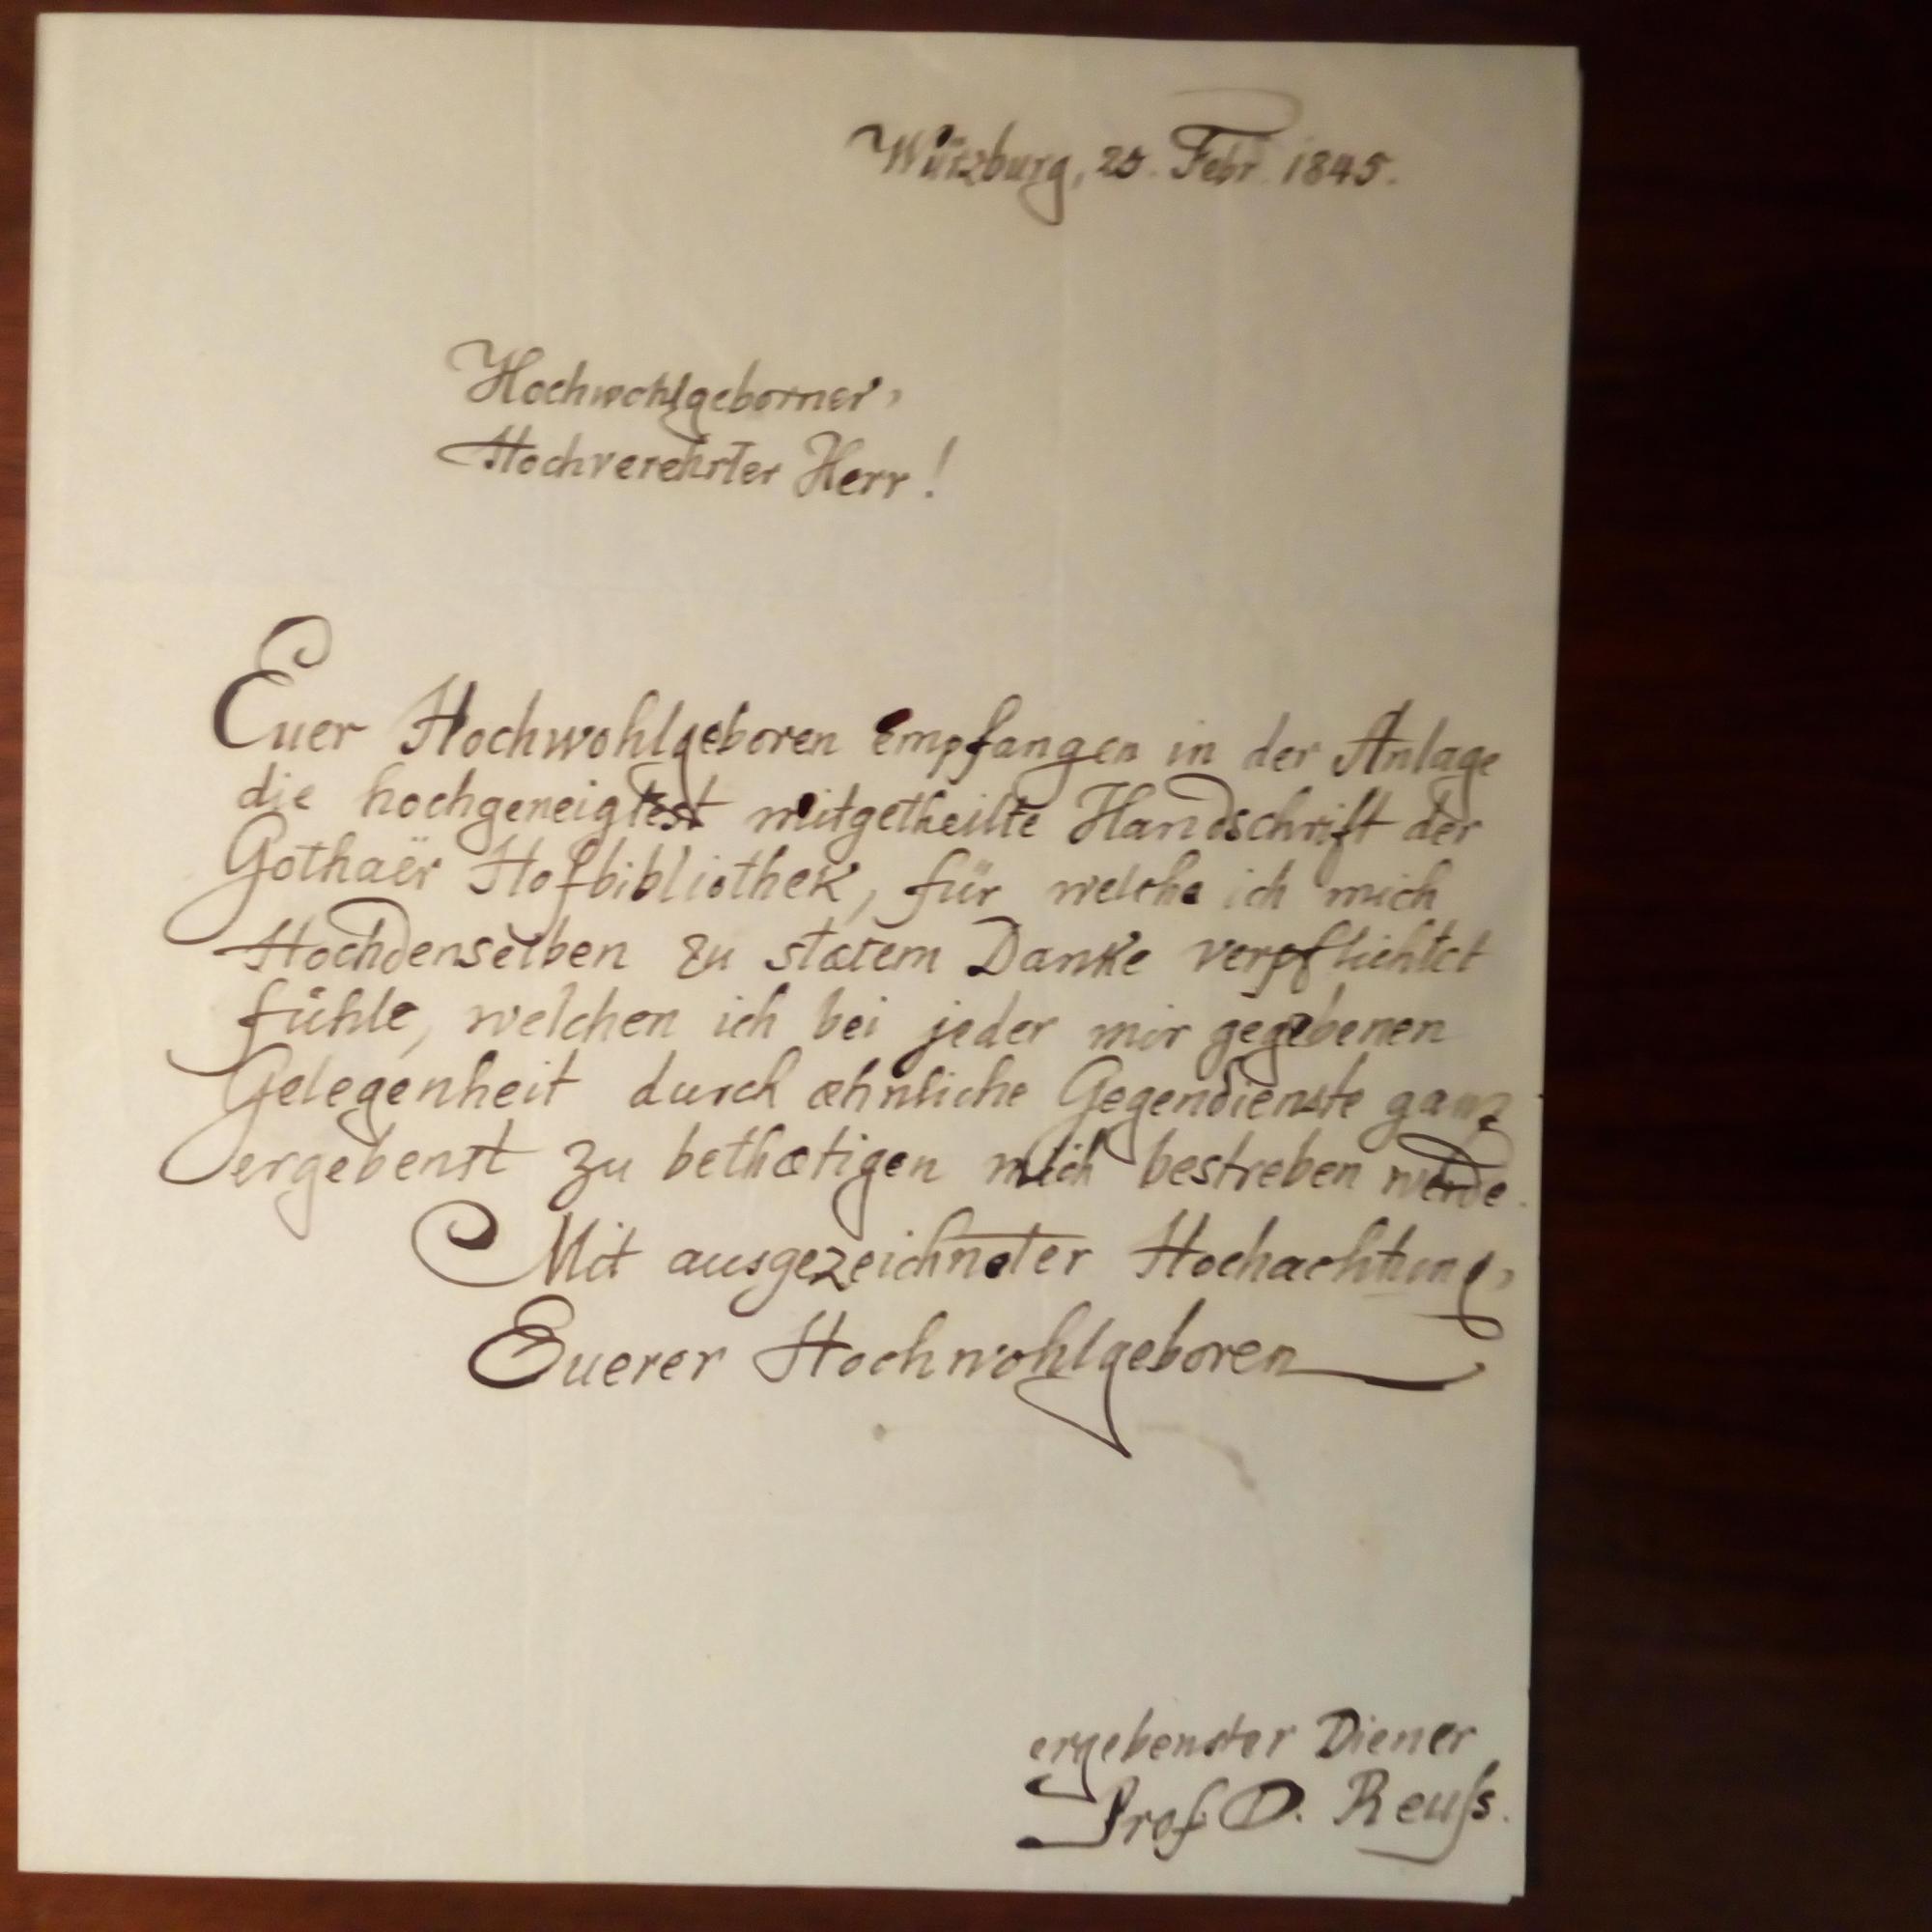 Würzburg, 25. Febr. 1845.
Hochwohlgeborner,
Hochverehrter Herr!
Euer Hochwohlgeboren empfangen in der Anlage
die hochgeneigtest mitgetheilte Handschrift der
Gothaër Hofbibliothek, für welche ich mich
Hochdenselben zu stætem Danke verpflichtet
fühle, welchen ich bei jeder mir gegebenen
Gelegenheit durch æhnliche Gegendienste ganz
ergebenst zu bethætigen mich bestreben werde.
Mit ausgezeichneter Hochachtung,
Euerer Hochwohlgeboren
ergebenster Diener
Prof. D. Reuſs.